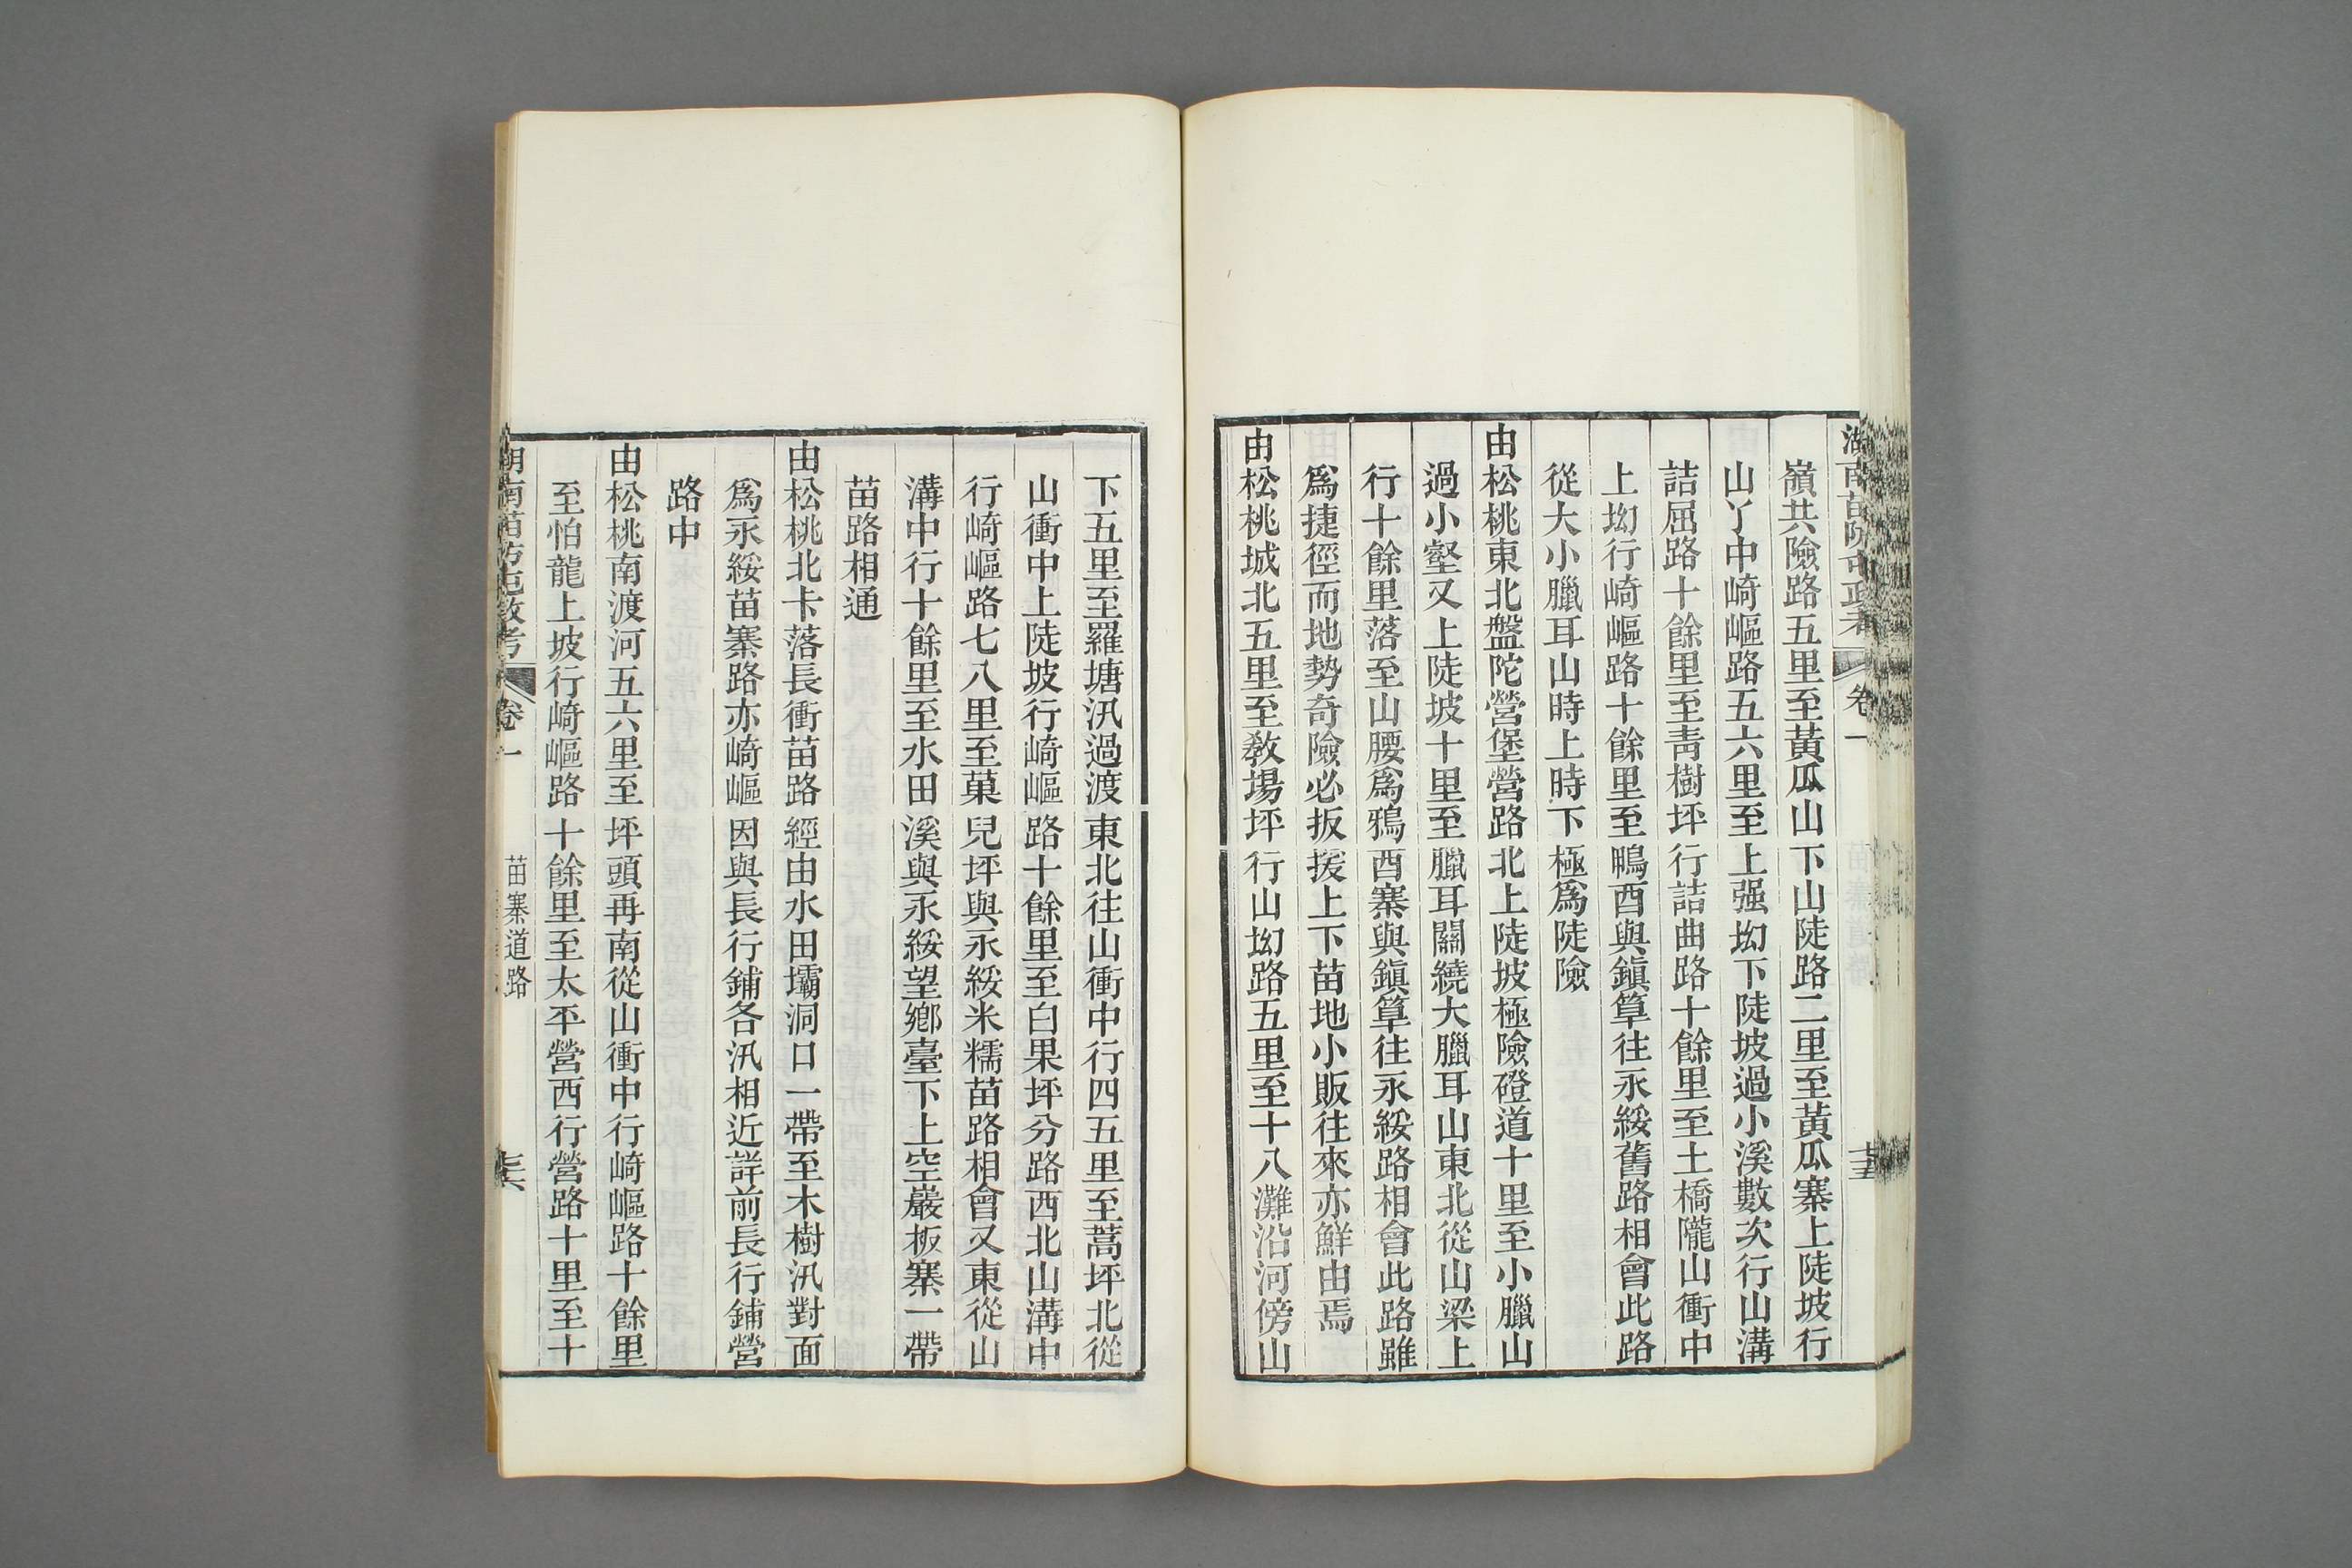 湖南苗防屯政考 卷一 七五
嶺共險路五里至黃瓜山下山陡路二里至黃瓜寨上陡坡行
山丫中崎嶇路五六里至上强㘭下陡坡過小溪數次行山溝
詰屈路十餘里至靑樹坪行詰曲路十餘里至土橋隴山衝中
上㘭行崎嶇路十餘里至鴨酉與鎭筸往永綏舊路相會此路
從大小臘耳山時上時下極爲陡險
由松桃東北盤陀營堡營路北上陡坡極險磴道十里至小臘山
過小壑又上陡坡十里至臘耳關繞大臘耳山東北從山梁上
行十餘里落至山腰爲鴉酉寨與鎭筸往永綏路相會此路雖
爲捷徑而地勢奇險必扳援上下苗地小販往來亦鮮由焉
由松桃城北五里至敎場坪行山㘭路五里至十八灘沿河傍山
下五里至羅塘汛過渡東北往山衝中行四五里至蒿坪北從
山衝中上陡坡行崎嶇路十餘里至白果坪分路西北山溝中
行崎嶇路七八里至菓兒坪與永綏米糯苗路相會又東從山
溝中行十餘里至水田溪與永綏望鄕臺下上空巖板寨一帶
苗路相通
由松桃北卡落長衝苗路經由水田壩洞口一帶至木樹汛對面
爲永綏苗寨路亦崎嶇因與長行鋪各汛相近詳前長行鋪營
路中
由松桃南渡河五六里至坪頭再南從山衝中行崎嶇路十餘里
至怕龍上坡行崎嶇路十餘里至太平營西行營路十里至十
湖南苗防屯政考 卷一 苗寨道路 七六